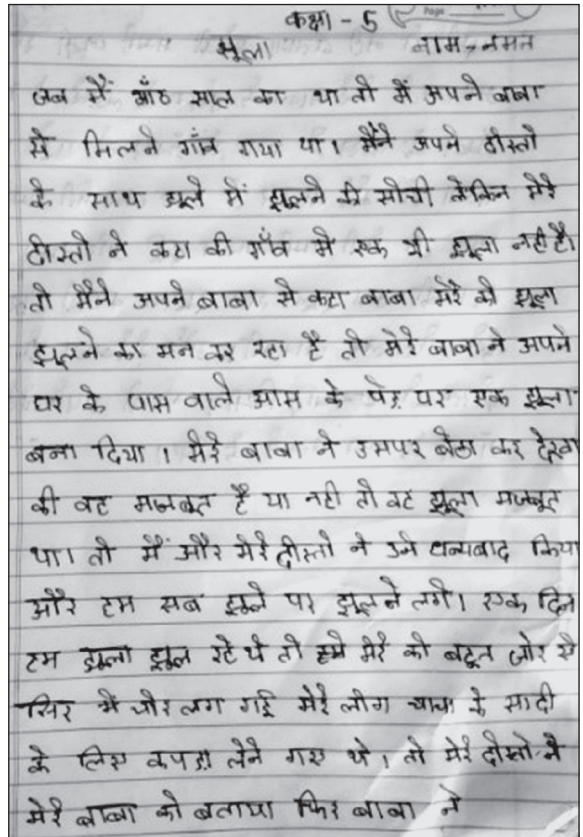 कक्षा - 5
झूला नाम - नमन
जब मैं आँठ साल का था तो में अपने बाबा
से मिलने गाँव गया था। मैंने अपने दोस्तो
के साथ झूले में झूलने की सोची लेकिन मेरे
दोस्तो ने कहा की गाँव मे एक भी झूला नही है।
तो मैंने अपने बाबा से कहा बाबा मेरे को झूला
झूलने का मन कर रहा है तो मेरे बाबा ने अपने
घर के पास वाले आम के पेड़ पर एक झूला
बना दिया। मेरे बाबा ने उसपर बेठा कर देखा
की वह मजबूत है या नही तो वह झूला मजबूत
था। तो मैं और मेरे दोस्तो ने उने धन्यबाद किया
और हम सब झूले पर झूलने लगे। एक दिन
हम झूला झूल रहे थे तो मेरे को बहुत जोर से
सिर मे चोर लग गई मेरे लोग चाचा के सादी
के लिए कपड़ा लेने गए थे। तो मेरे दोस्तो ने
मेरे बाबा को बताया फिर बाबा ने